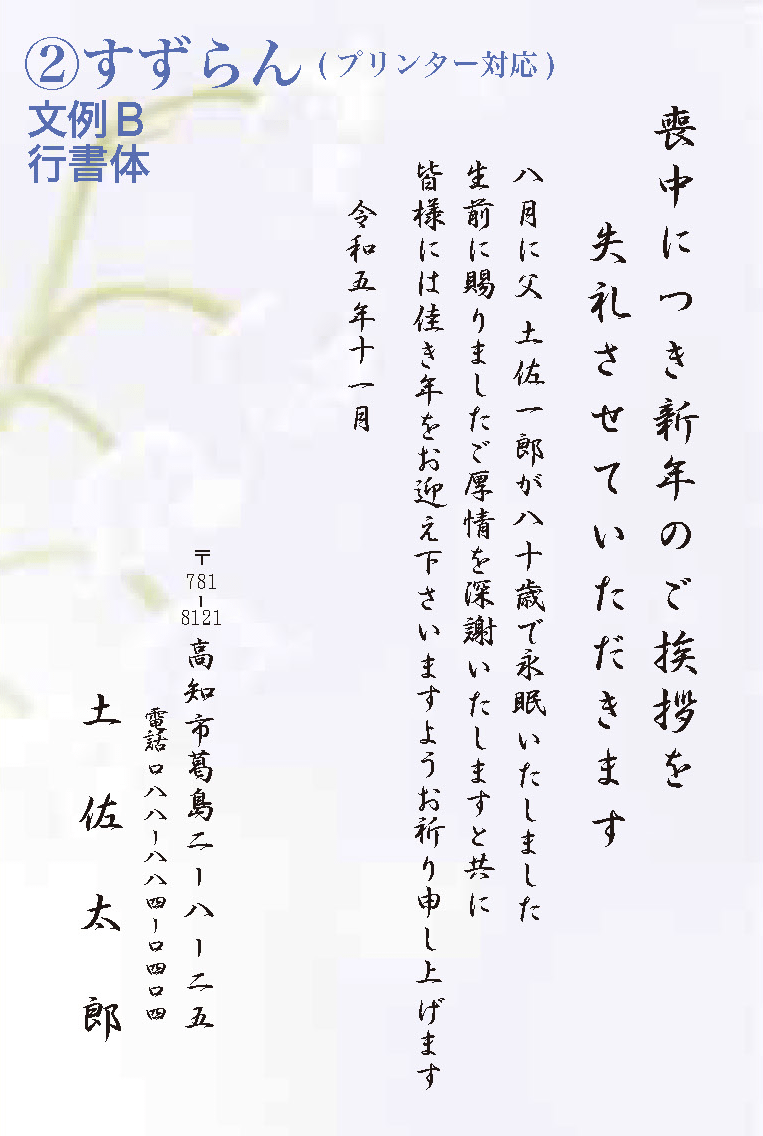 ②すずらん(プリンター対応)
文例B
行書体
喪中につき新年のご挨拶を
失礼させていただきます
八月に父 土佐一郎が八十歳で永眠いたしました
生前に賜りましたご厚情を深謝いたしますと共に
皆様には佳き年をお迎え下さいますようお祈り申し上げます
令和五年十一月
〒781-8121 高知市葛島二ー八ー二五
電話 〇八八ー八八四ー〇四〇四
土佐太郎